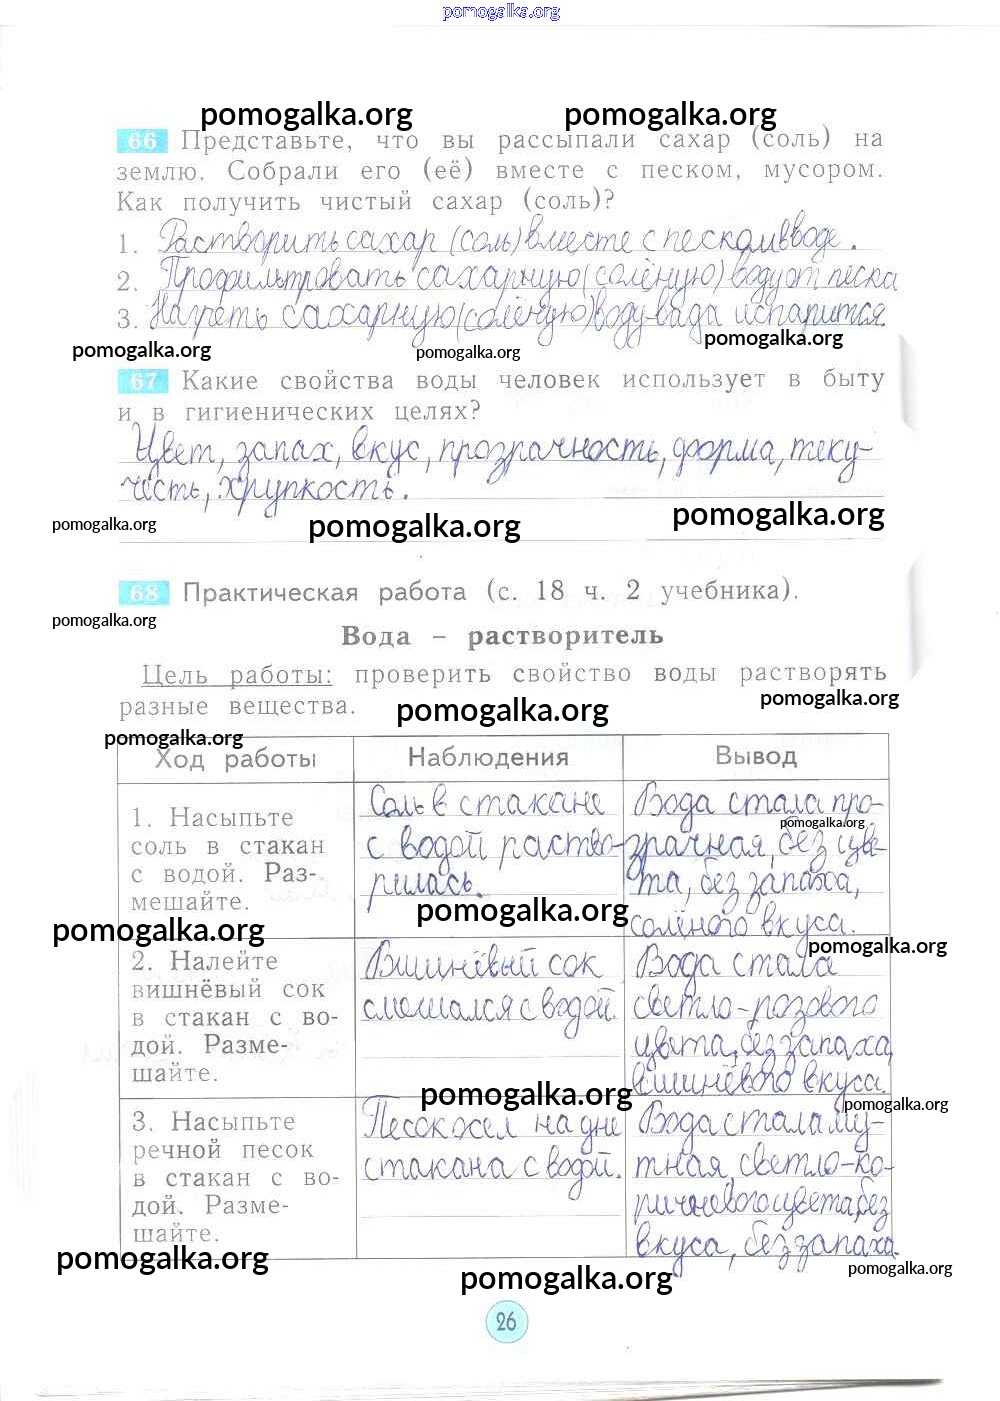 pomogalka.org
pomogalka.org pomogalka.org
66 Представьте, что вы рассыпали сахар (соль) на
землю. Собрали его (её) вместе с песком, мусором.
Как получить чистый сахар (соль)?
1. Растворить сахар (соль) вместе с песком в воде.
2. Профильтровать сахарную (солёную) воду от песка
3. Нагреть сахарную (солёную) воду-вада испарится.
pomogalka.org pomogalka.org pomogalka.org
67 Какие свойства воды человек использует в быту
и в гигиенических целях?
Цвет, запах, вкус, прозрачность, форма, теку-
честь, хрупкость.
pomogalka.org pomogalka.org pomogalka.org
68 Практическая работа (с. 18 ч. 2 учебника).
pomogalka.org
Вода – растворитель
Цель работы: проверить свойство воды растворять
разные вещества.
pomogalka.org pomogalka.org
pomogalka.org
Ход работы Наблюдения Вывод
1. Насыпьте
соль в стакан
с водой. Раз-
мешайте.
Соль в стакане
с водой раство-
рилась.
Вода стала про-
pomogalka.org
зрачная, без цве-
та, без запаха,
солёного вкуса.
pomogalka.org
pomogalka.org pomogalka.org
2. Налейте
вишнёвый сок
в стакан с во-
дой. Разме-
шайте.
Вишнёвый сок
смешался с водой.
Вода стала
светло-розового
цвета, без запаха,
вишнёвого вкуса.
pomogalka.org pomogalka.org
3. Насыпьте
речной песок
в стакан с во-
дой. Разме-
шайте.
Песок осел на дне
стакана с водой.
Вода стала му-
тная, светло-ко-
ричневого цвета, без
вкуса, без запаха.
pomogalka.org pomogalka.org pomogalka.org
26